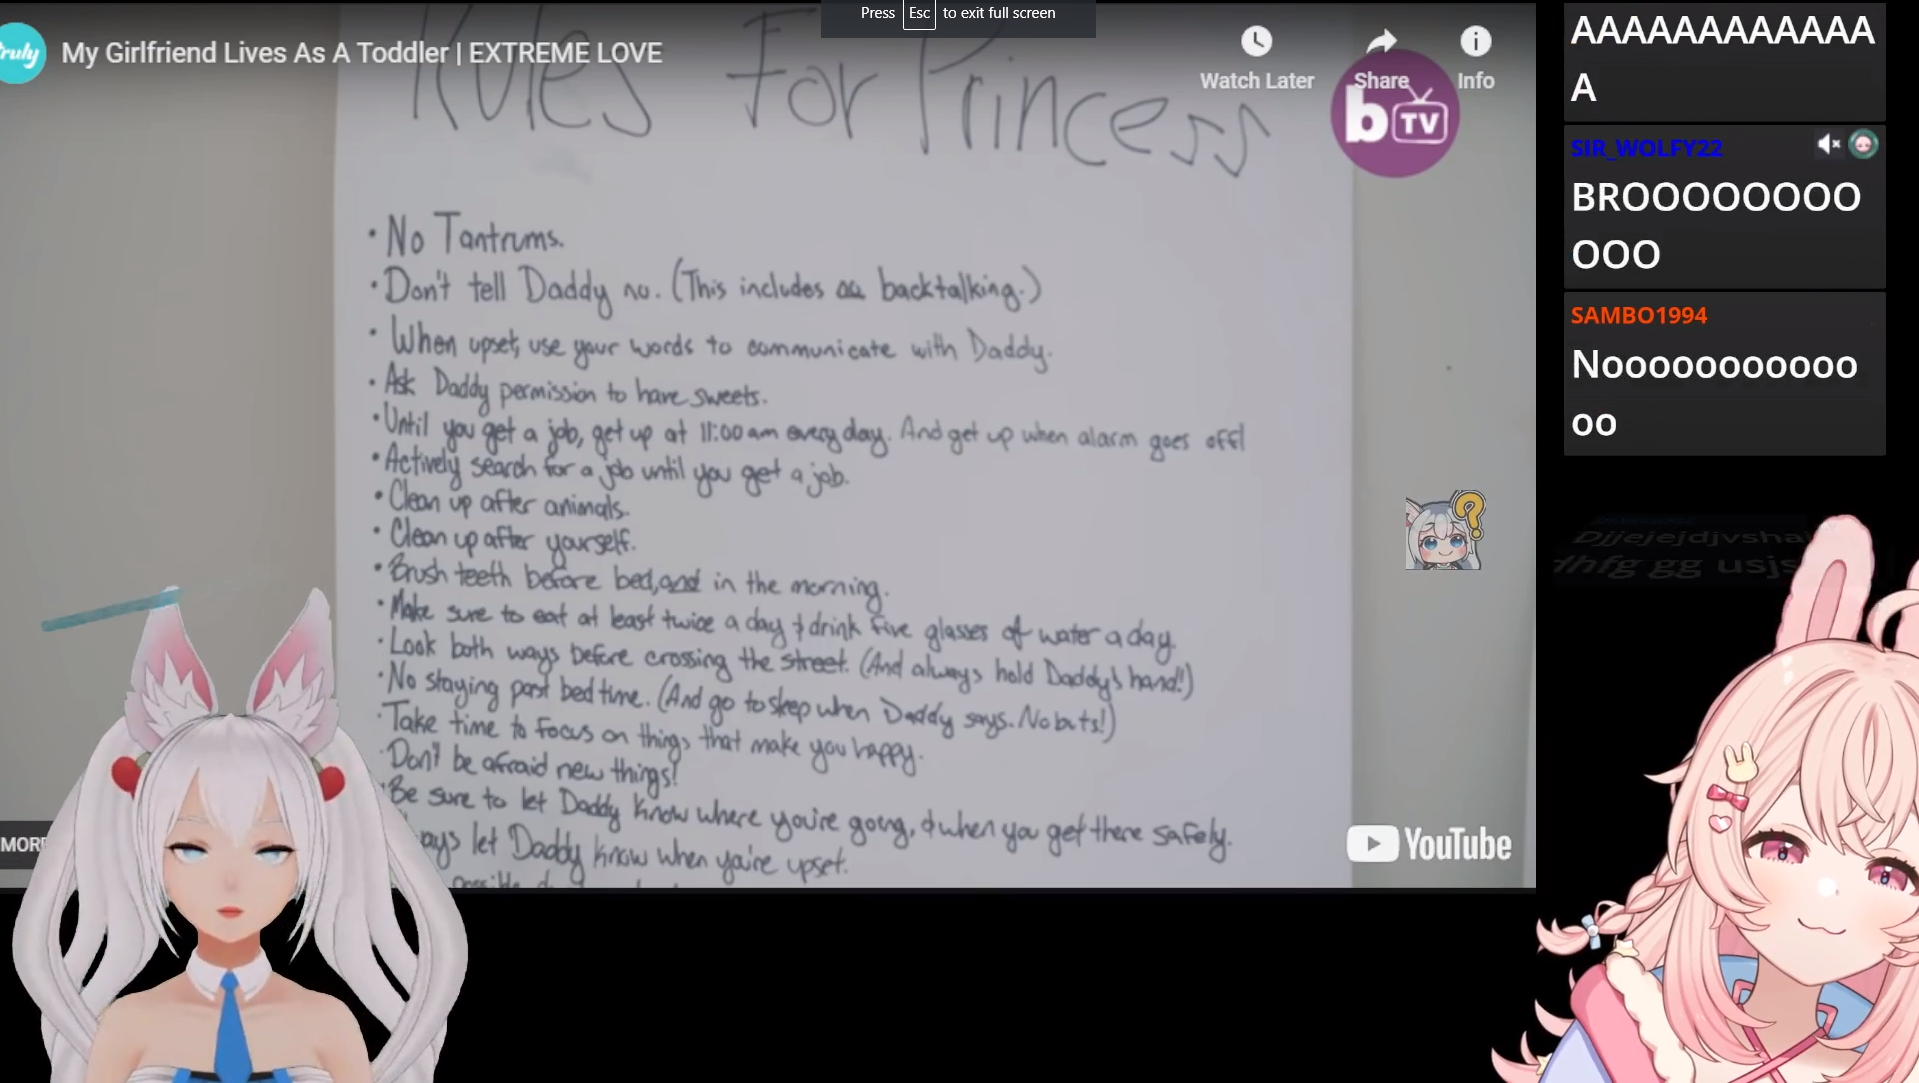 Press Esc to exit full screen
truly
My Girlfriend Lives As A Toddler | EXTREME LOVE
Watch Later
Share
Info
b TV
Rules For Princess
• No Tantrums.
• Don't tell Daddy no. (This includes backtalking.)
• When upset, use your words to communicate with Daddy.
• Ask Daddy permission to have sweets.
• Until you get a job, get up at 11:00 am every day. And get up when alarm goes off!
• Actively search for a job until you get a job.
• Clean up after animals.
• Clean up after yourself.
• Brush teeth before bed, and in the morning.
• Make sure to eat at least twice a day & drink five glasses of water a day.
• Look both ways before crossing the street. (And always hold Daddy's hand!!)
• No staying past bed time. (And go to sleep when Daddy says. No buts!)
• Take time to focus on things that make you happy.
• Don't be afraid new things!
• Be sure to let Daddy know where you're going, & when you get there safely.
let Daddy know when you're upset.
MORE
YouTube
AAAAAAAAAAAAA
A
SIR_WOLFY22
BROOOOOOOO
OOO
SAMBO1994
Nooooooooooo
oo
gg